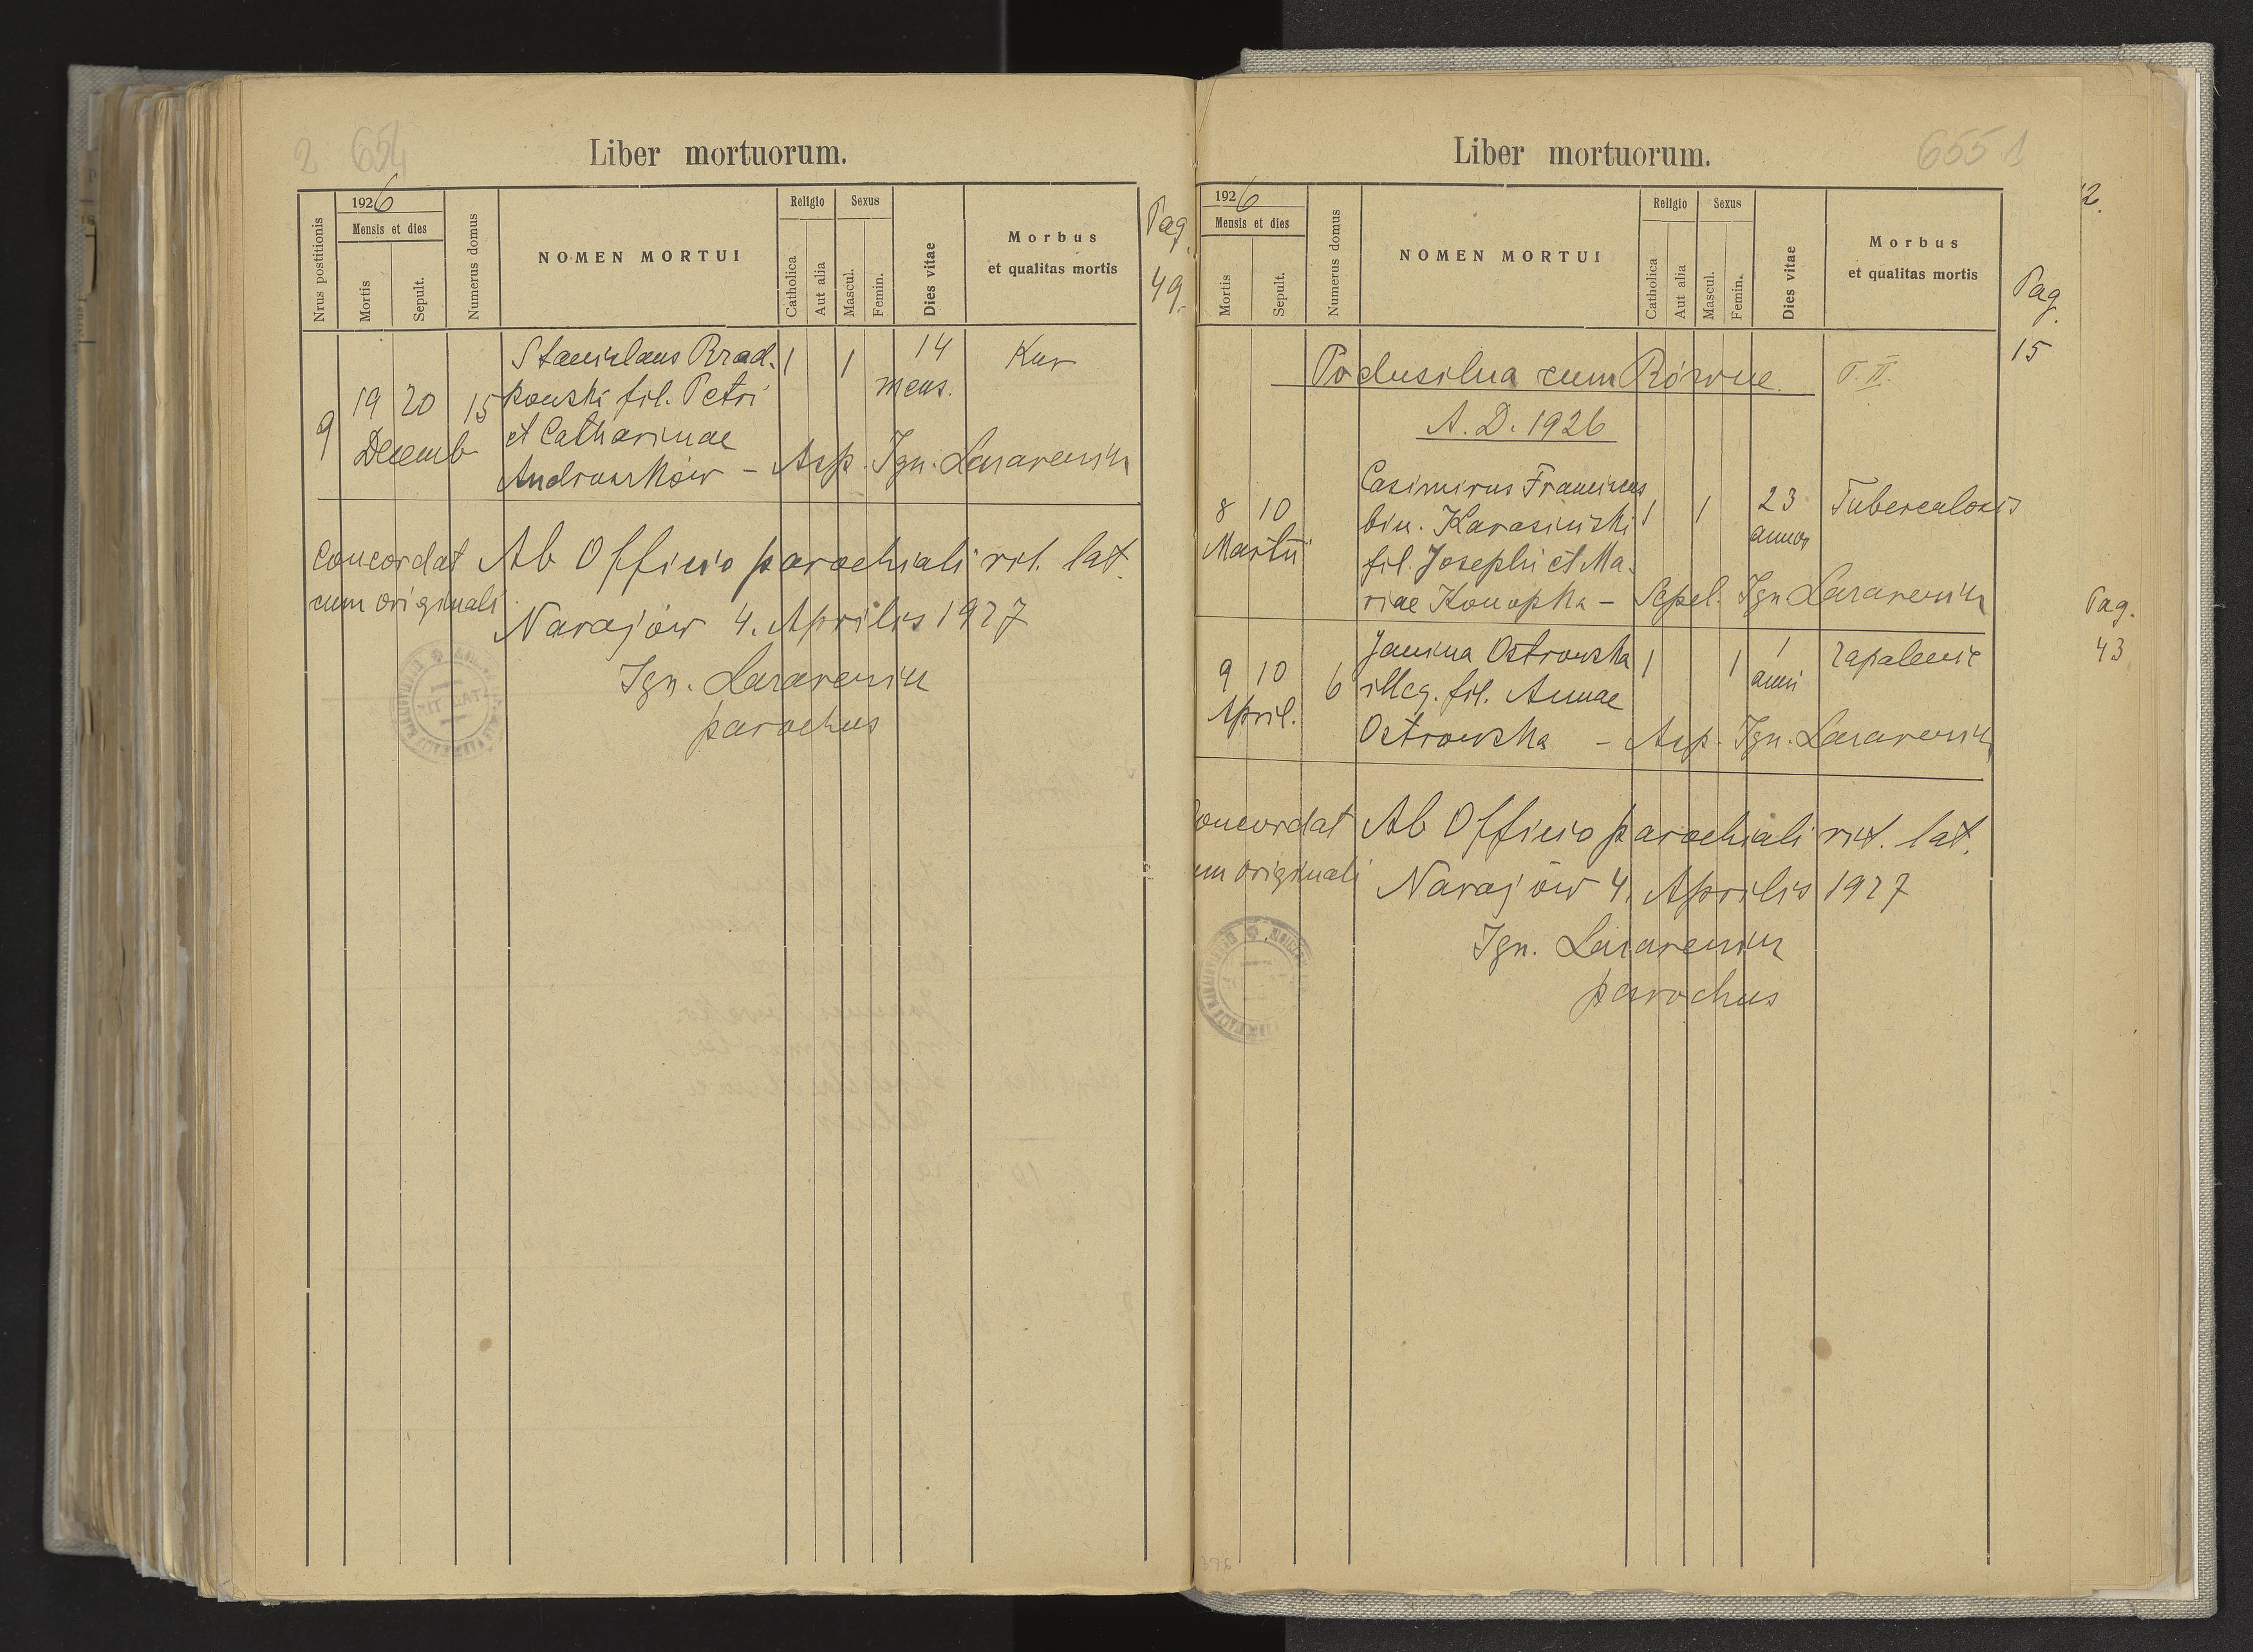 2 654
Liber mortuorum.
Nrus postitionis
1926
Mensis et dies
Mortis
Sepult.
Numerus domus
NOMEN MORTUI
Religio
Catholica
Aut alia
Sexus
Mascul.
Femin.
Dies vitae
Morbus
et qualitas mortis
Pag.
49.
Stanislaus Brad- 1 1 14 Kur
19 20 15 kowski fil. Petri mens.
9 Decemb et Catharinae
Andrusików – Asp. Ign. Lazarewicz
Concordat Ab Officio parochiali rit. lat.
cum originali Narajów 4. Aprilis 1927
Ign. Lazarewicz
parochus
RIT. LAT.
655 1
Liber mortuorum.
1926
Mensis et dies
Mortis
Sepult.
Numerus domus
NOMEN MORTUI
Religio
Catholica
Aut alia
Sexus
Mascul.
Femin.
Dies vitae
Morbus
et qualitas mortis
Pag.
15
Podusilna cum Rózsne. T. II.
A. D. 1926
Casimirus Franciscus
8 10 bin. Karasiński 1 1 23 Tuberculosis
Martii fil. Josephi et Ma- annor
riae Konopka – Sepel. Ign Lazarewicz
Janina Ostrowska 1 1 1 zapalenie
9 10 6 illeg. fil. Annae anni
April. Ostrowska – Asp. Ign. Lazarewicz
oncordat Ab Officio parochiali rit. lat.
um originali Narajów 4. Aprilis 1927
Ign. Lazarewicz
parochus
2.
Pag.
43